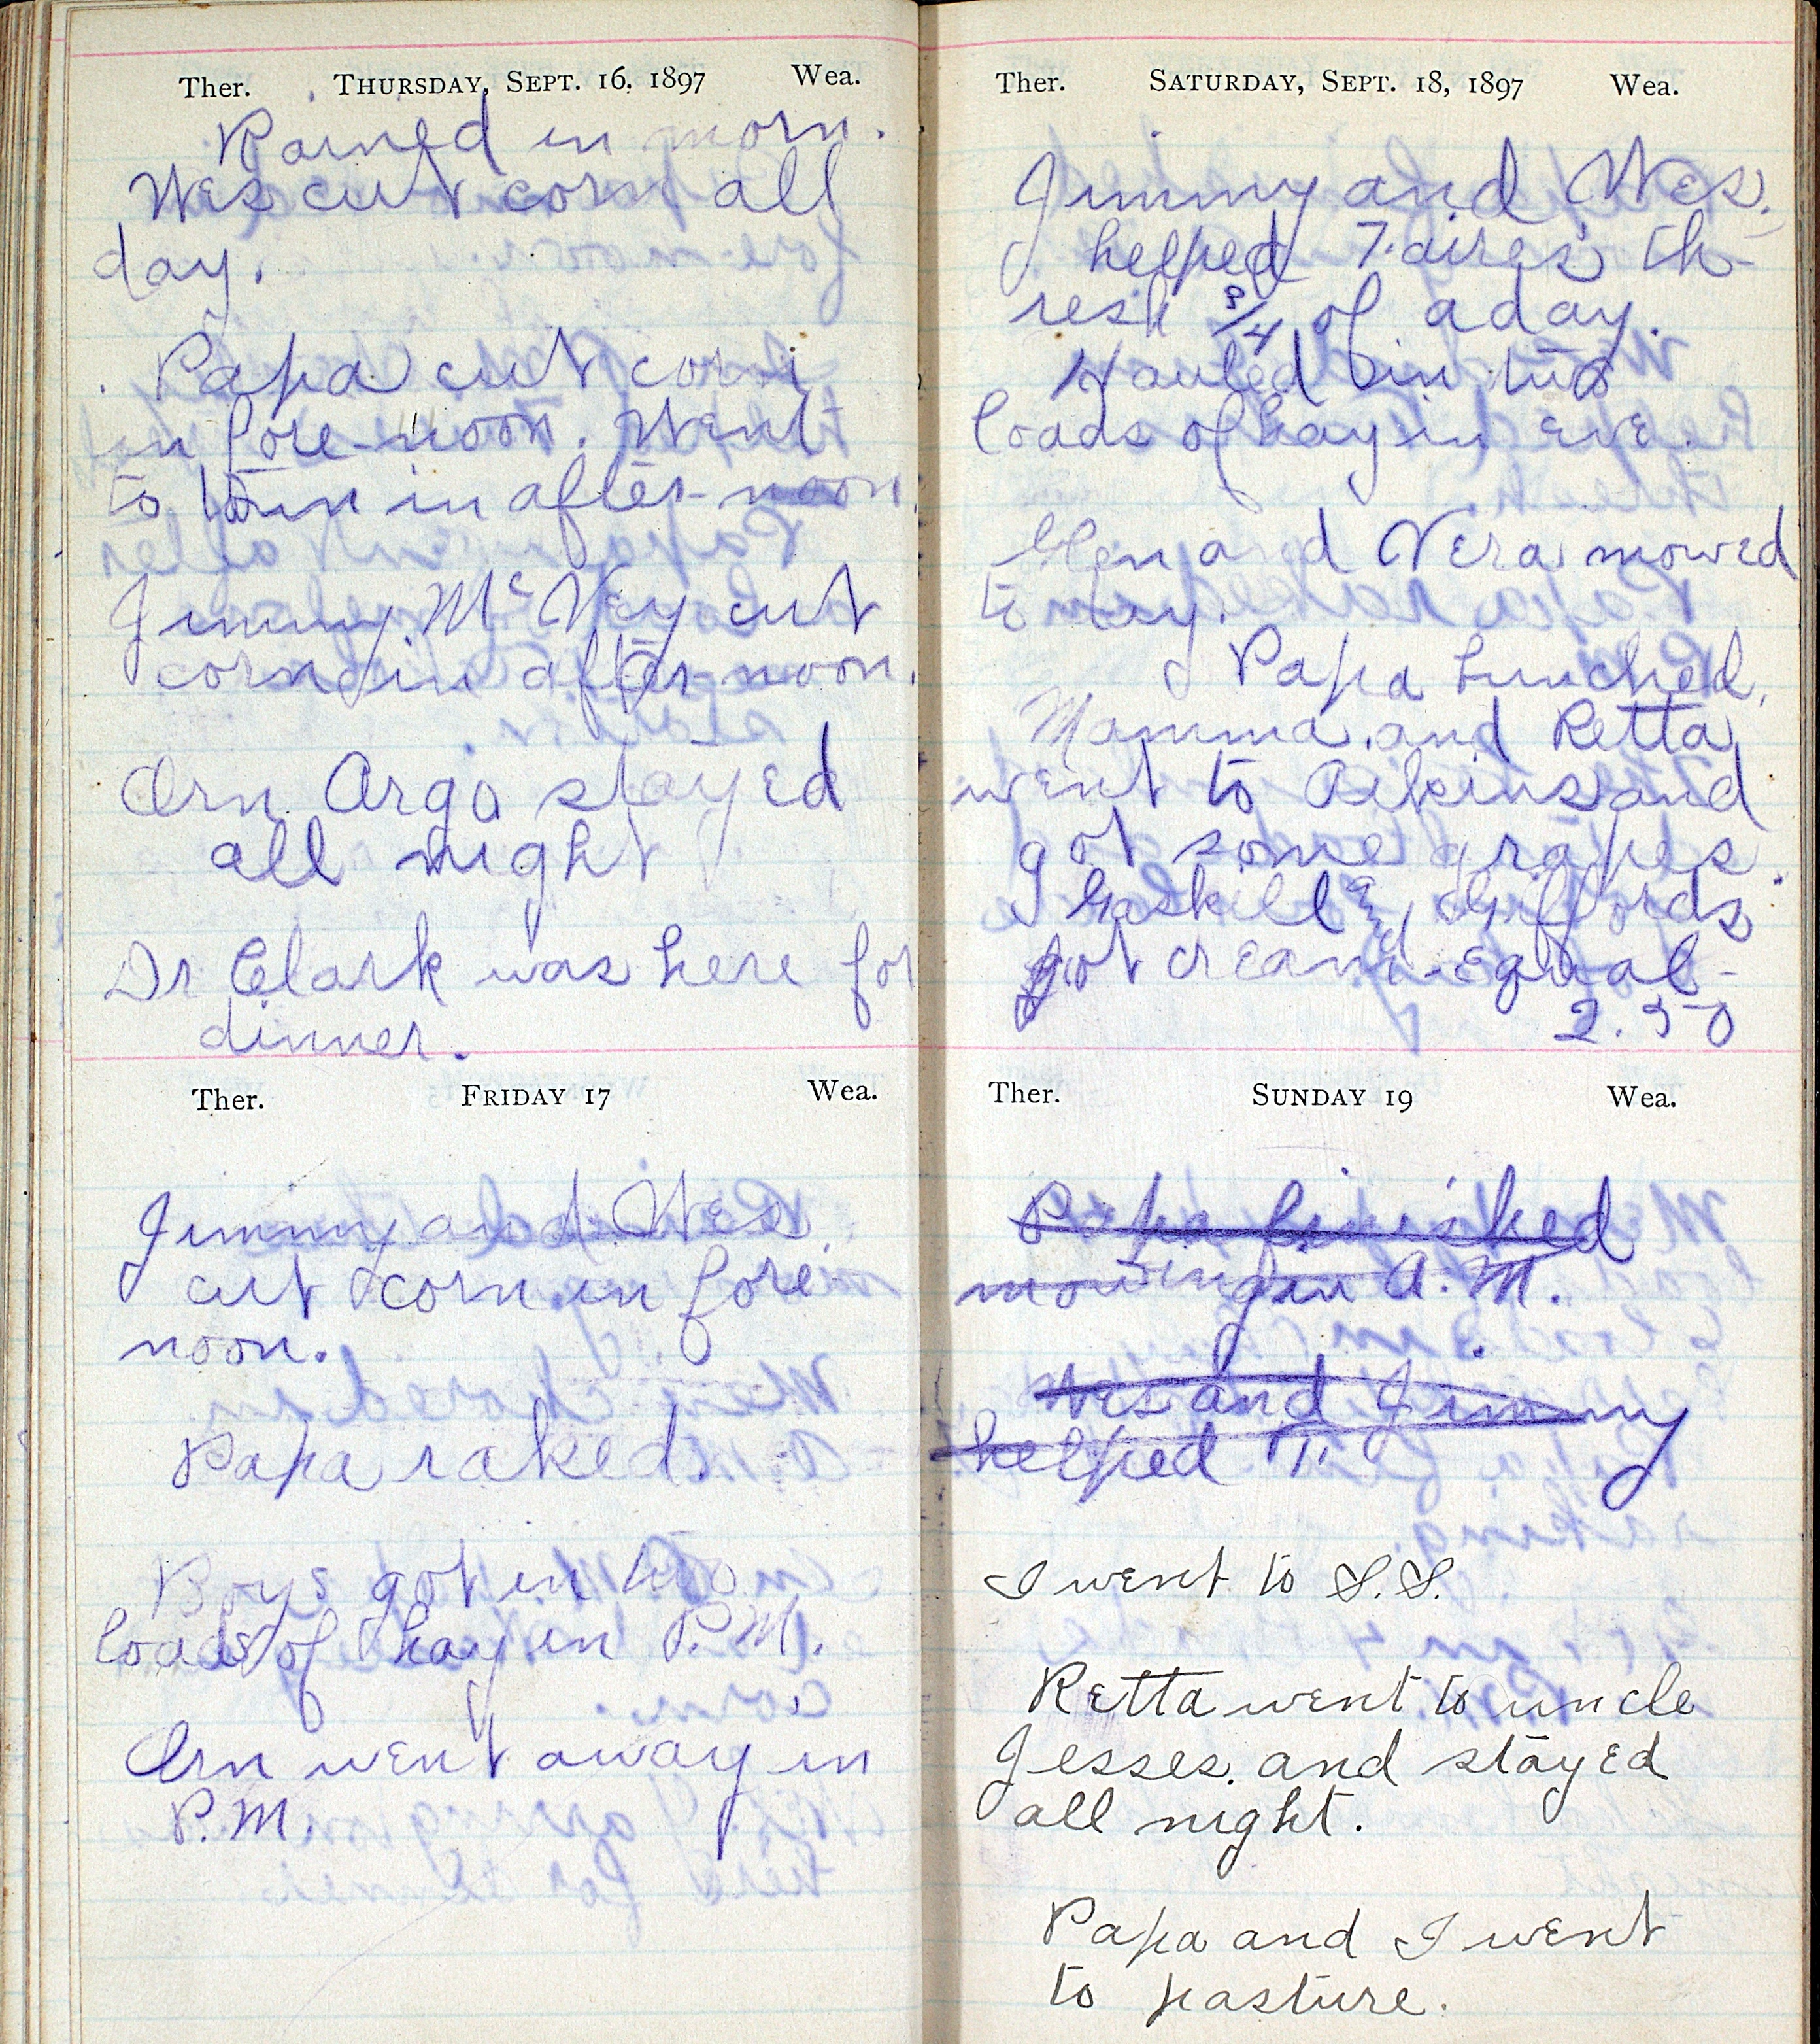 Ther. THURSDAY, SEPT. 16, 1897 Wea.
Rained in morn.
Wes cut corn all
day.
Papa cut corn
in fore-noon. Went
to town in after-noon.
Jimmy McVey cut
corn in after-noon.
Orn Argo stayed
all night
Dr Clark was here for
dinner.
Ther. FRIDAY 17 Wea.
Jimmy and Wes
cut corn in fore
noon.
Papa raked.
Boys got in two
loads of hay in P.M.
Orn went away in
P.M.
Ther. SATURDAY, SEPT. 18, 1897 Wea.
Jimmy and Wes.
helped Taires th-
resh 3/4 of a day.
Hauled in two
loads of hay in eve.
Glen and Vera mowed
to day.
Papa bunched.
Mamma and Retta
went to and
got some grapes.
Gaskill & Giffords
got cream equal-
2.50
Ther. SUNDAY 19 Wea.
Papa finished
mowing in A.M.
Wes and Jimmy
helped T.
I went to S.S.
Retta went to uncle
Jesses. and stayed
all night.
Papa and I went
to pasture.